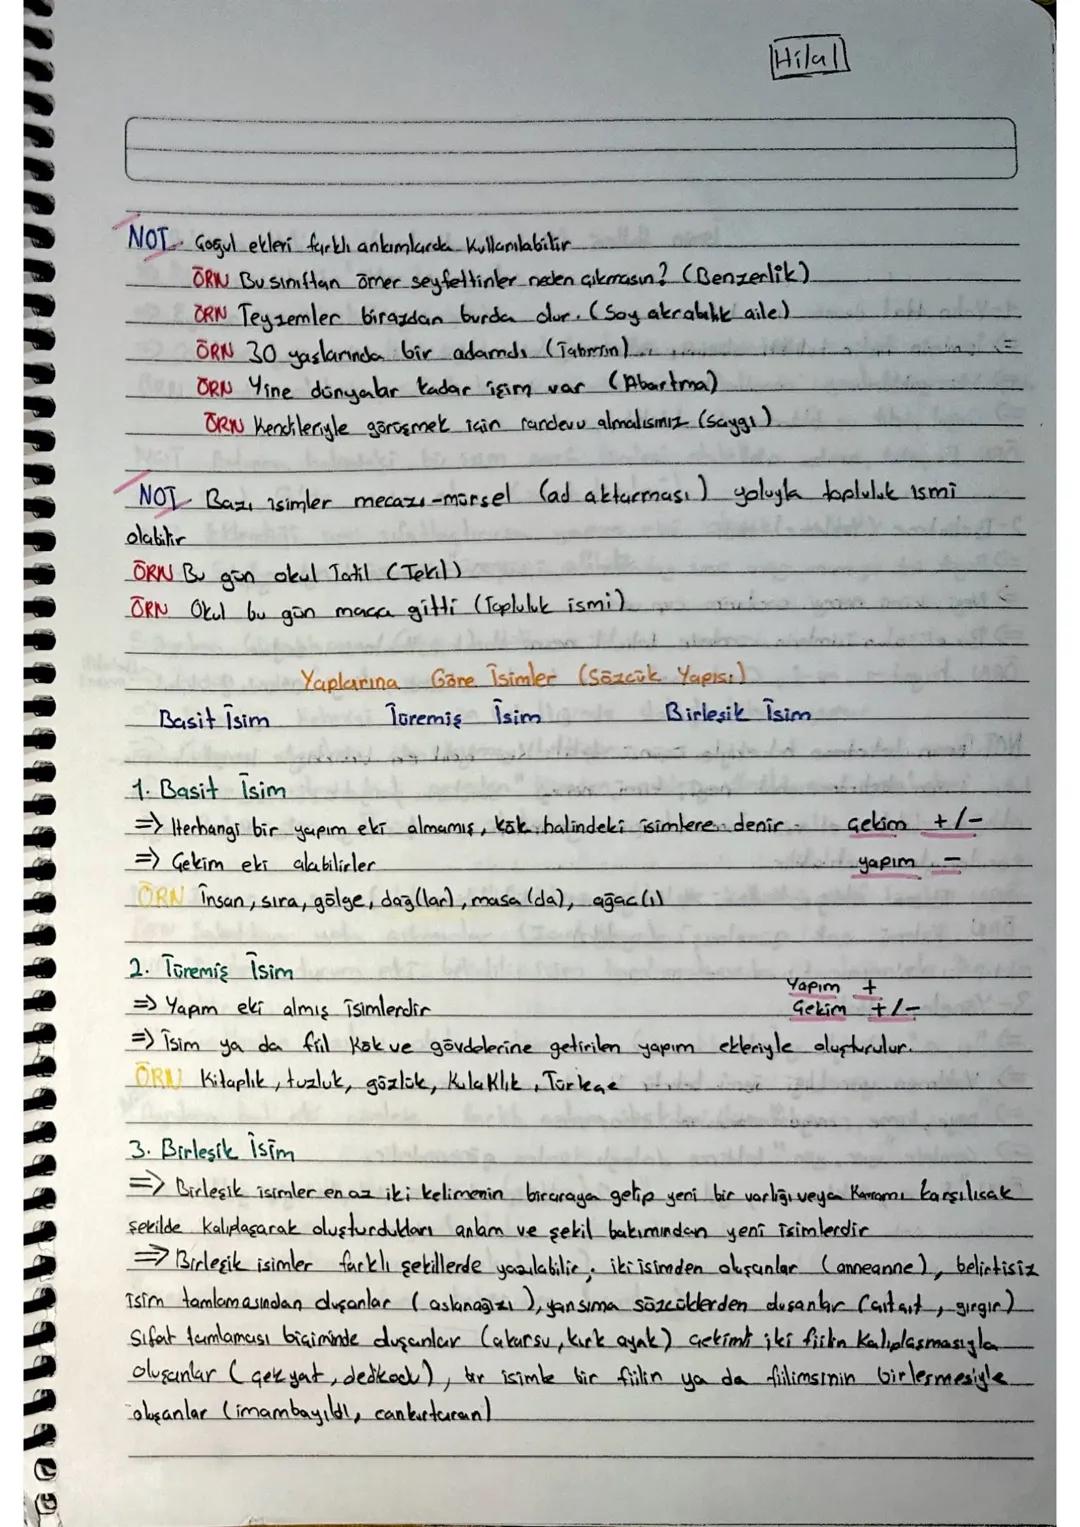 Hilal
NOT Çoğul ekleri farklı anlamlarda kullanılabilir
ÖRN Bu sınıftan ömer seyfettinler neden çıkmasın? (Benzerlik)
ÖRN Teyzemler birazdan burda olur. (Soy akrabalık aile)
ÖRN 30 yaşlarında bir adamdı (Tahmin)
ÖRN Yine dünyalar kadar işim var (Abartma)
ÖRN Kendileriyle görüşmek için randevu almalısınız (saygı)
NOT Bazı isimler mecazı-mürsel (ad aktarması) yoluyla topluluk ismi
olabilir
ÖRN Bu gün okul Tatil (Tekil)
ÖRN Okul bu gün maça gitti (Topluluk ismi)
Yapılarına Göre İsimler (Sözcük Yapısı)
Basit İsim Türemiş İsim Birleşik İsim
1. Basit İsim
=> Herhangi bir yapım eki almamış, kök halindeki isimlere denir. Çekim +/-
=> Çekim eki alabilirler yapım -
ÖRN İnsan, sıra, gölge, dağ(lar), masa(da), ağac(ı)
2. Türemiş İsim Yapım +
=> Yapım eki almış isimlerdir Çekim +/-
=> İsim ya da fiil kök ve gövdelerine getirilen yapım ekleriyle oluşturulur.
ÖRN Kitaplık, tuzluk, gözlük, Kulaklık, Türkçe
3. Birleşik İsim
=> Birleşik isimler en az iki kelimenin biraraya gelip yeni bir varlığı veya Kavramı karşılıcak
şekilde kalıplaşarak oluşturdukları anlam ve şekil bakımından yeni isimlerdir
=> Birleşik isimler farklı şekillerde yazılabilir. iki isimden oluşanlar (anneanne), belirtisiz
isim tamlamasından oluşanlar (aslanağzı), yansıma sözcüklerden oluşanlar (çıtçıt, gırgır)
Sıfat tamlaması biçiminde oluşanlar (akarsu, kırk ayak) çekimli iki fiilin kalıplaşmasıyla
oluşanlar (çekyat, dedikodu), bir isimle bir fiilin ya da fiilimsinin birleşmesiyle
oluşanlar (imambayıldı, cankurtaran)